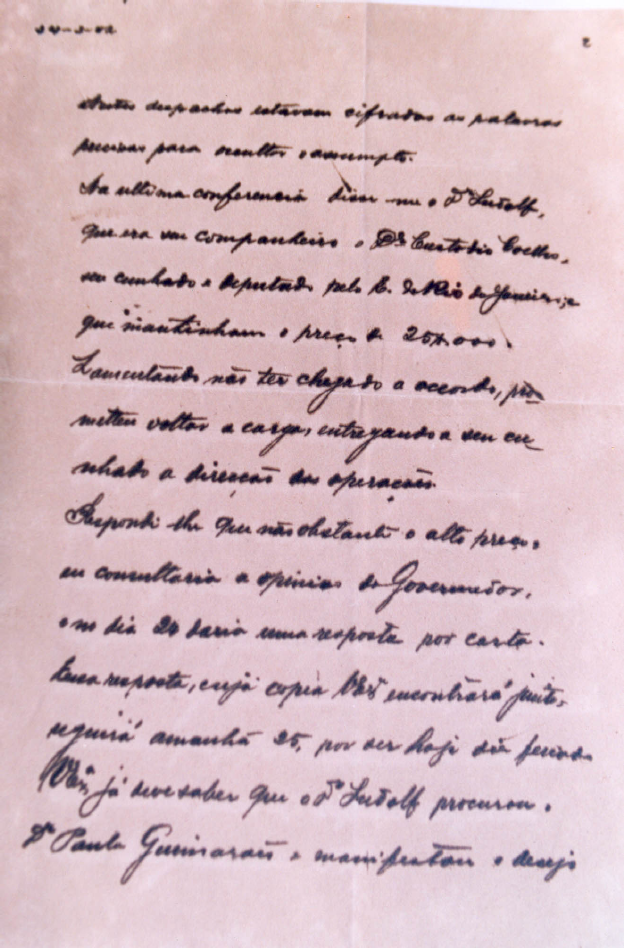 24-2-02
2
Nestes despachos estavam cifradas as palavras
precisas para occultar o assumpto.
Na ultima conferencia disse-me o Dr Ludolf,
que era seu companheiro o Dr Custodio Coelho,
seu cunhado e deputado pelo E. do Rio de Janeiro, e
que mantinham o preço de 25
Lamentando não ter chegado a accordo, pro-
metteu voltar a carga, entregando a seu cu-
nhado a direcção das operações.
Respondi lhe que não obstante o alto preço,
eu consultaria a opinião do Governador,
e no dia 24 daria uma resposta por carta.
Essa resposta, cuja copia VExª encontrará junto,
seguirá amanhã 25, por ser hoje dia feriado
VExª já deve saber que o Dr Ludolf procurou o
Dr Paula Guimarães e manifestou o desejo